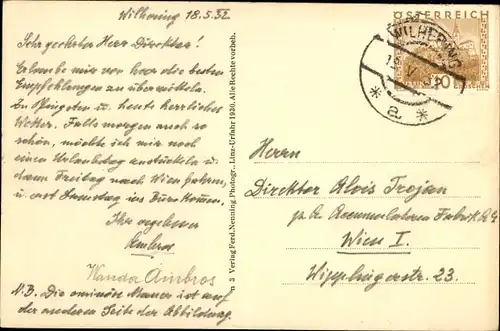 Wilhering 18.5.32
Sehr geehrter Herr Direktor!
Erlaube mir von hier die besten
Empfehlungen zu übermitteln.
Zu Pfingsten u. heute herrliches
Wetter. Falls morgen auch so
schön, möchte ich mir noch
einen Urlaubstag anstückeln u.
dann Freitag nach Wien fahren,
u. erst Samstag ins Büro kommen.
Ihr ergebener
Ambros
Wanda Ambros
N.B. Die ominöse Mauer ist auf
der anderen Seite der Abbildung.
Verlag Ferd. Nenning, Photogr., Linz-Urfahr 1930. Alle Rechte vorbeh.
ÖSTERREICH
10
GROSCHEN
WILHERING
18. V.
* a *
Herrn
Direktor Alois Trojan
p. A. Accumulatoren Fabrik A G
Wien I.
Wipplingerstr. 23.